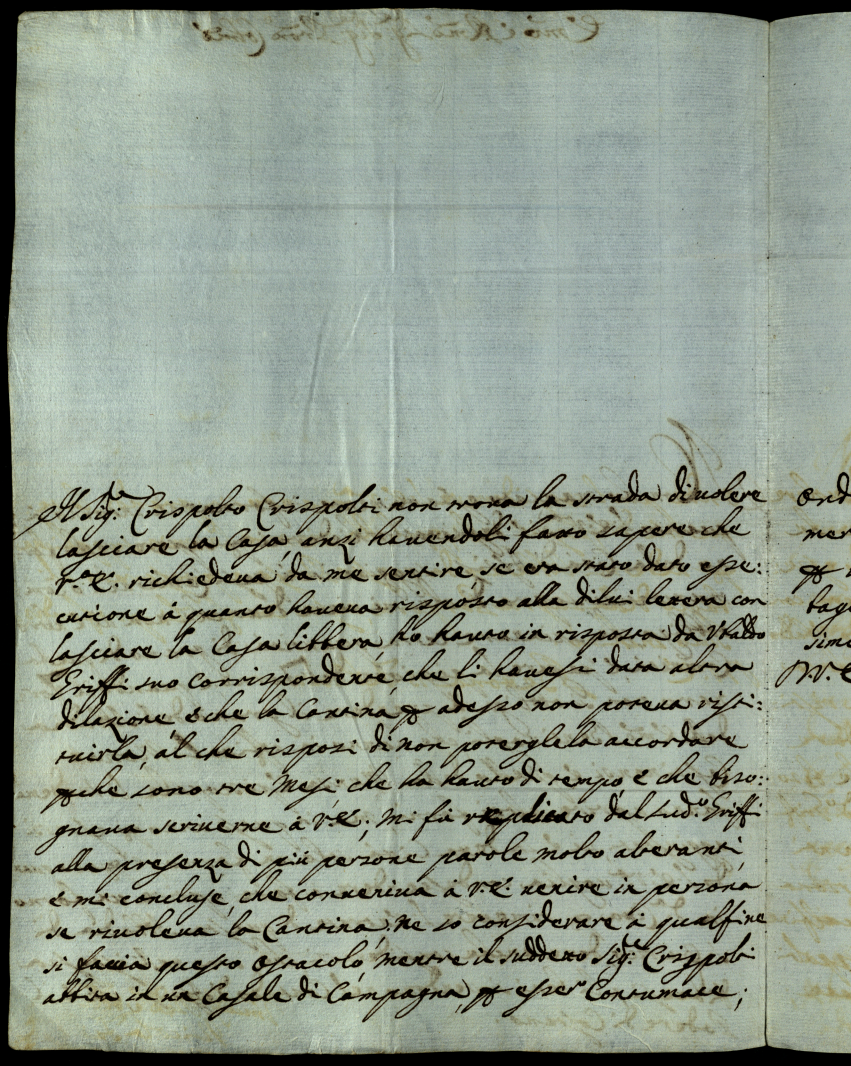 Il Sig:re Crispolto Crispolti non trova la strada di volere
lasciare la Casa, anzi havendoli fatto sapere che
V.E. richiedeva da me sentire se era stato dato esse:
cutione à quanto haveva risposto alla di lui lettera con
lasciare la Casa libbera, ho hauto in risposta da Ubaldo
Griffi suo Corrispondente, che li havessi data altra
dilazione, e che la Cantina p adesso non poteva risti:
tuirla, al che risposi di non potergliela accordare
pche sono tre Mesi che ha hauto di tempo, e che biso:
gnava scriverne à V.E.; Mi fù replicato dal sud.o Griffi
alla presenza di più persone parole molto alteranti,
e mi concluse, che conveniva à V.E. venire in persona
se rivoleva la Cantina. Ne so considerare à qual fine
si faccia questo ostacolo, mentre il suddetto Sig:re Crispolti
abbita in un Casale di Campagna, p esser Contumace;